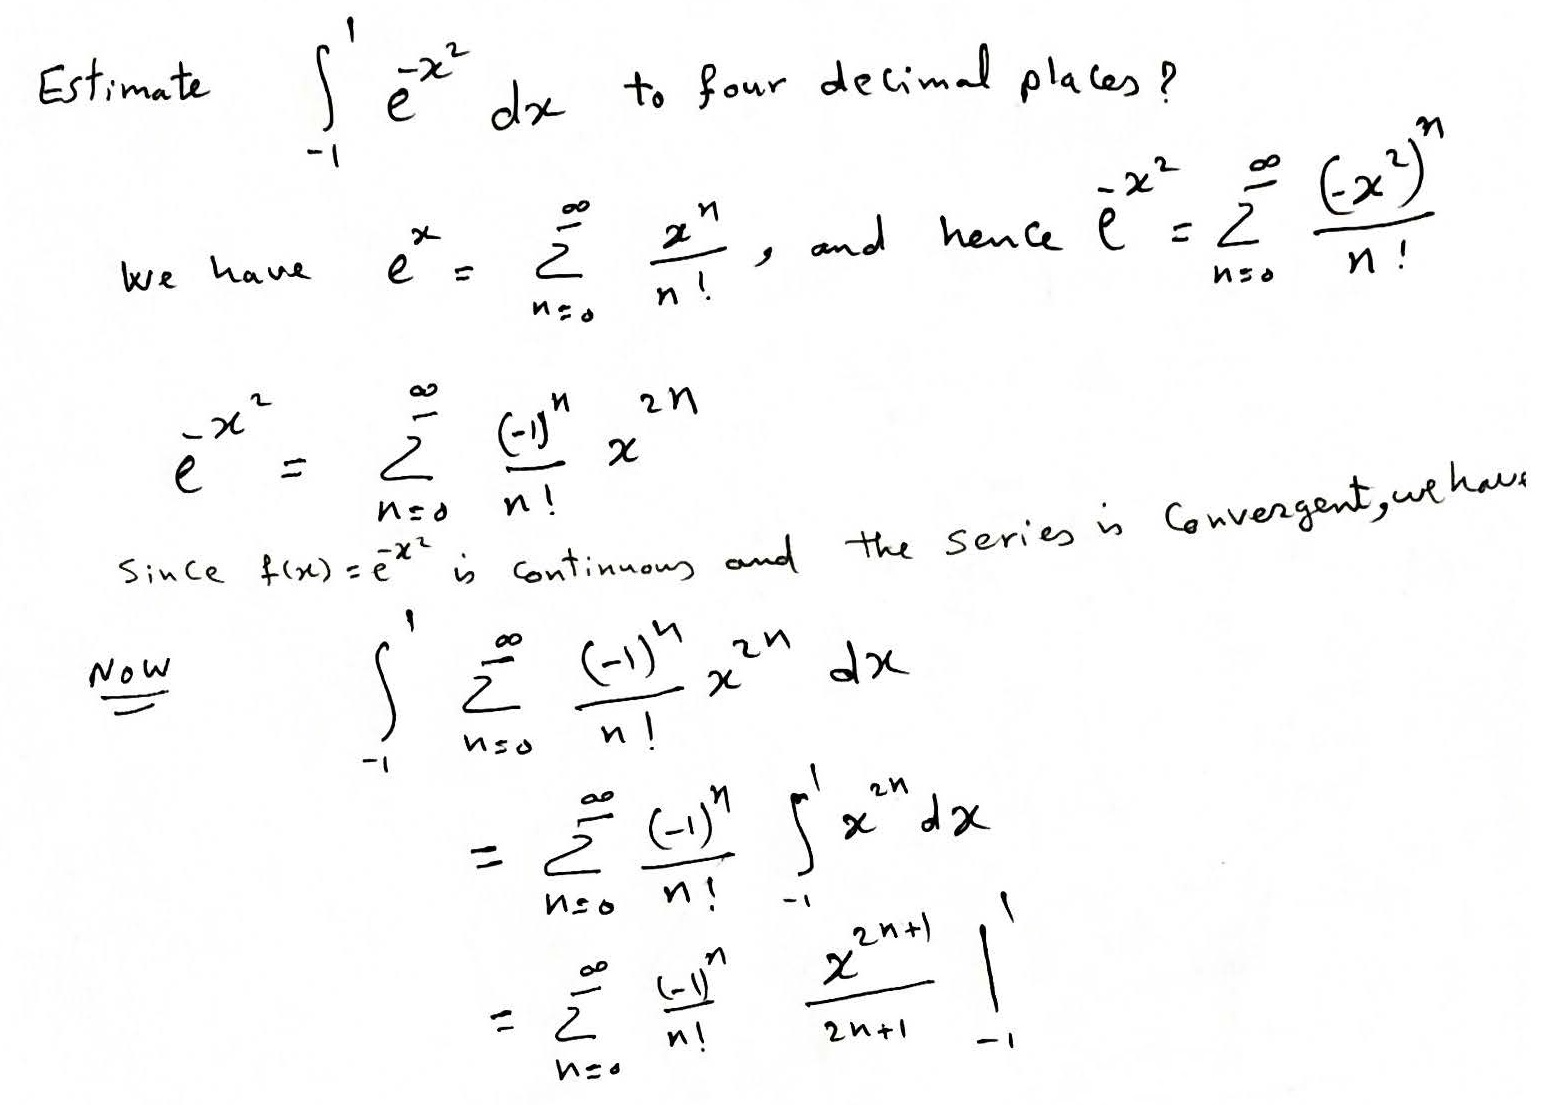 Estimate \int_{-1}^{1} e^{-x^2} dx to four decimal places?
We have e^x = \sum_{n=0}^{\infty} \frac{x^n}{n!}, and hence e^{-x^2} = \sum_{n=0}^{\infty} \frac{(-x^2)^n}{n!}
e^{-x^2} = \sum_{n=0}^{\infty} \frac{(-1)^n}{n!} x^{2n}
Since f(x) = e^{-x^2} is continuous and the series is convergent, we have
Now \int_{-1}^{1} \sum_{n=0}^{\infty} \frac{(-1)^n}{n!} x^{2n} dx
= \sum_{n=0}^{\infty} \frac{(-1)^n}{n!} \int_{-1}^{1} x^{2n} dx
= \sum_{n=0}^{\infty} \frac{(-1)^n}{n!} \frac{x^{2n+1}}{2n+1} |_{-1}^{1}